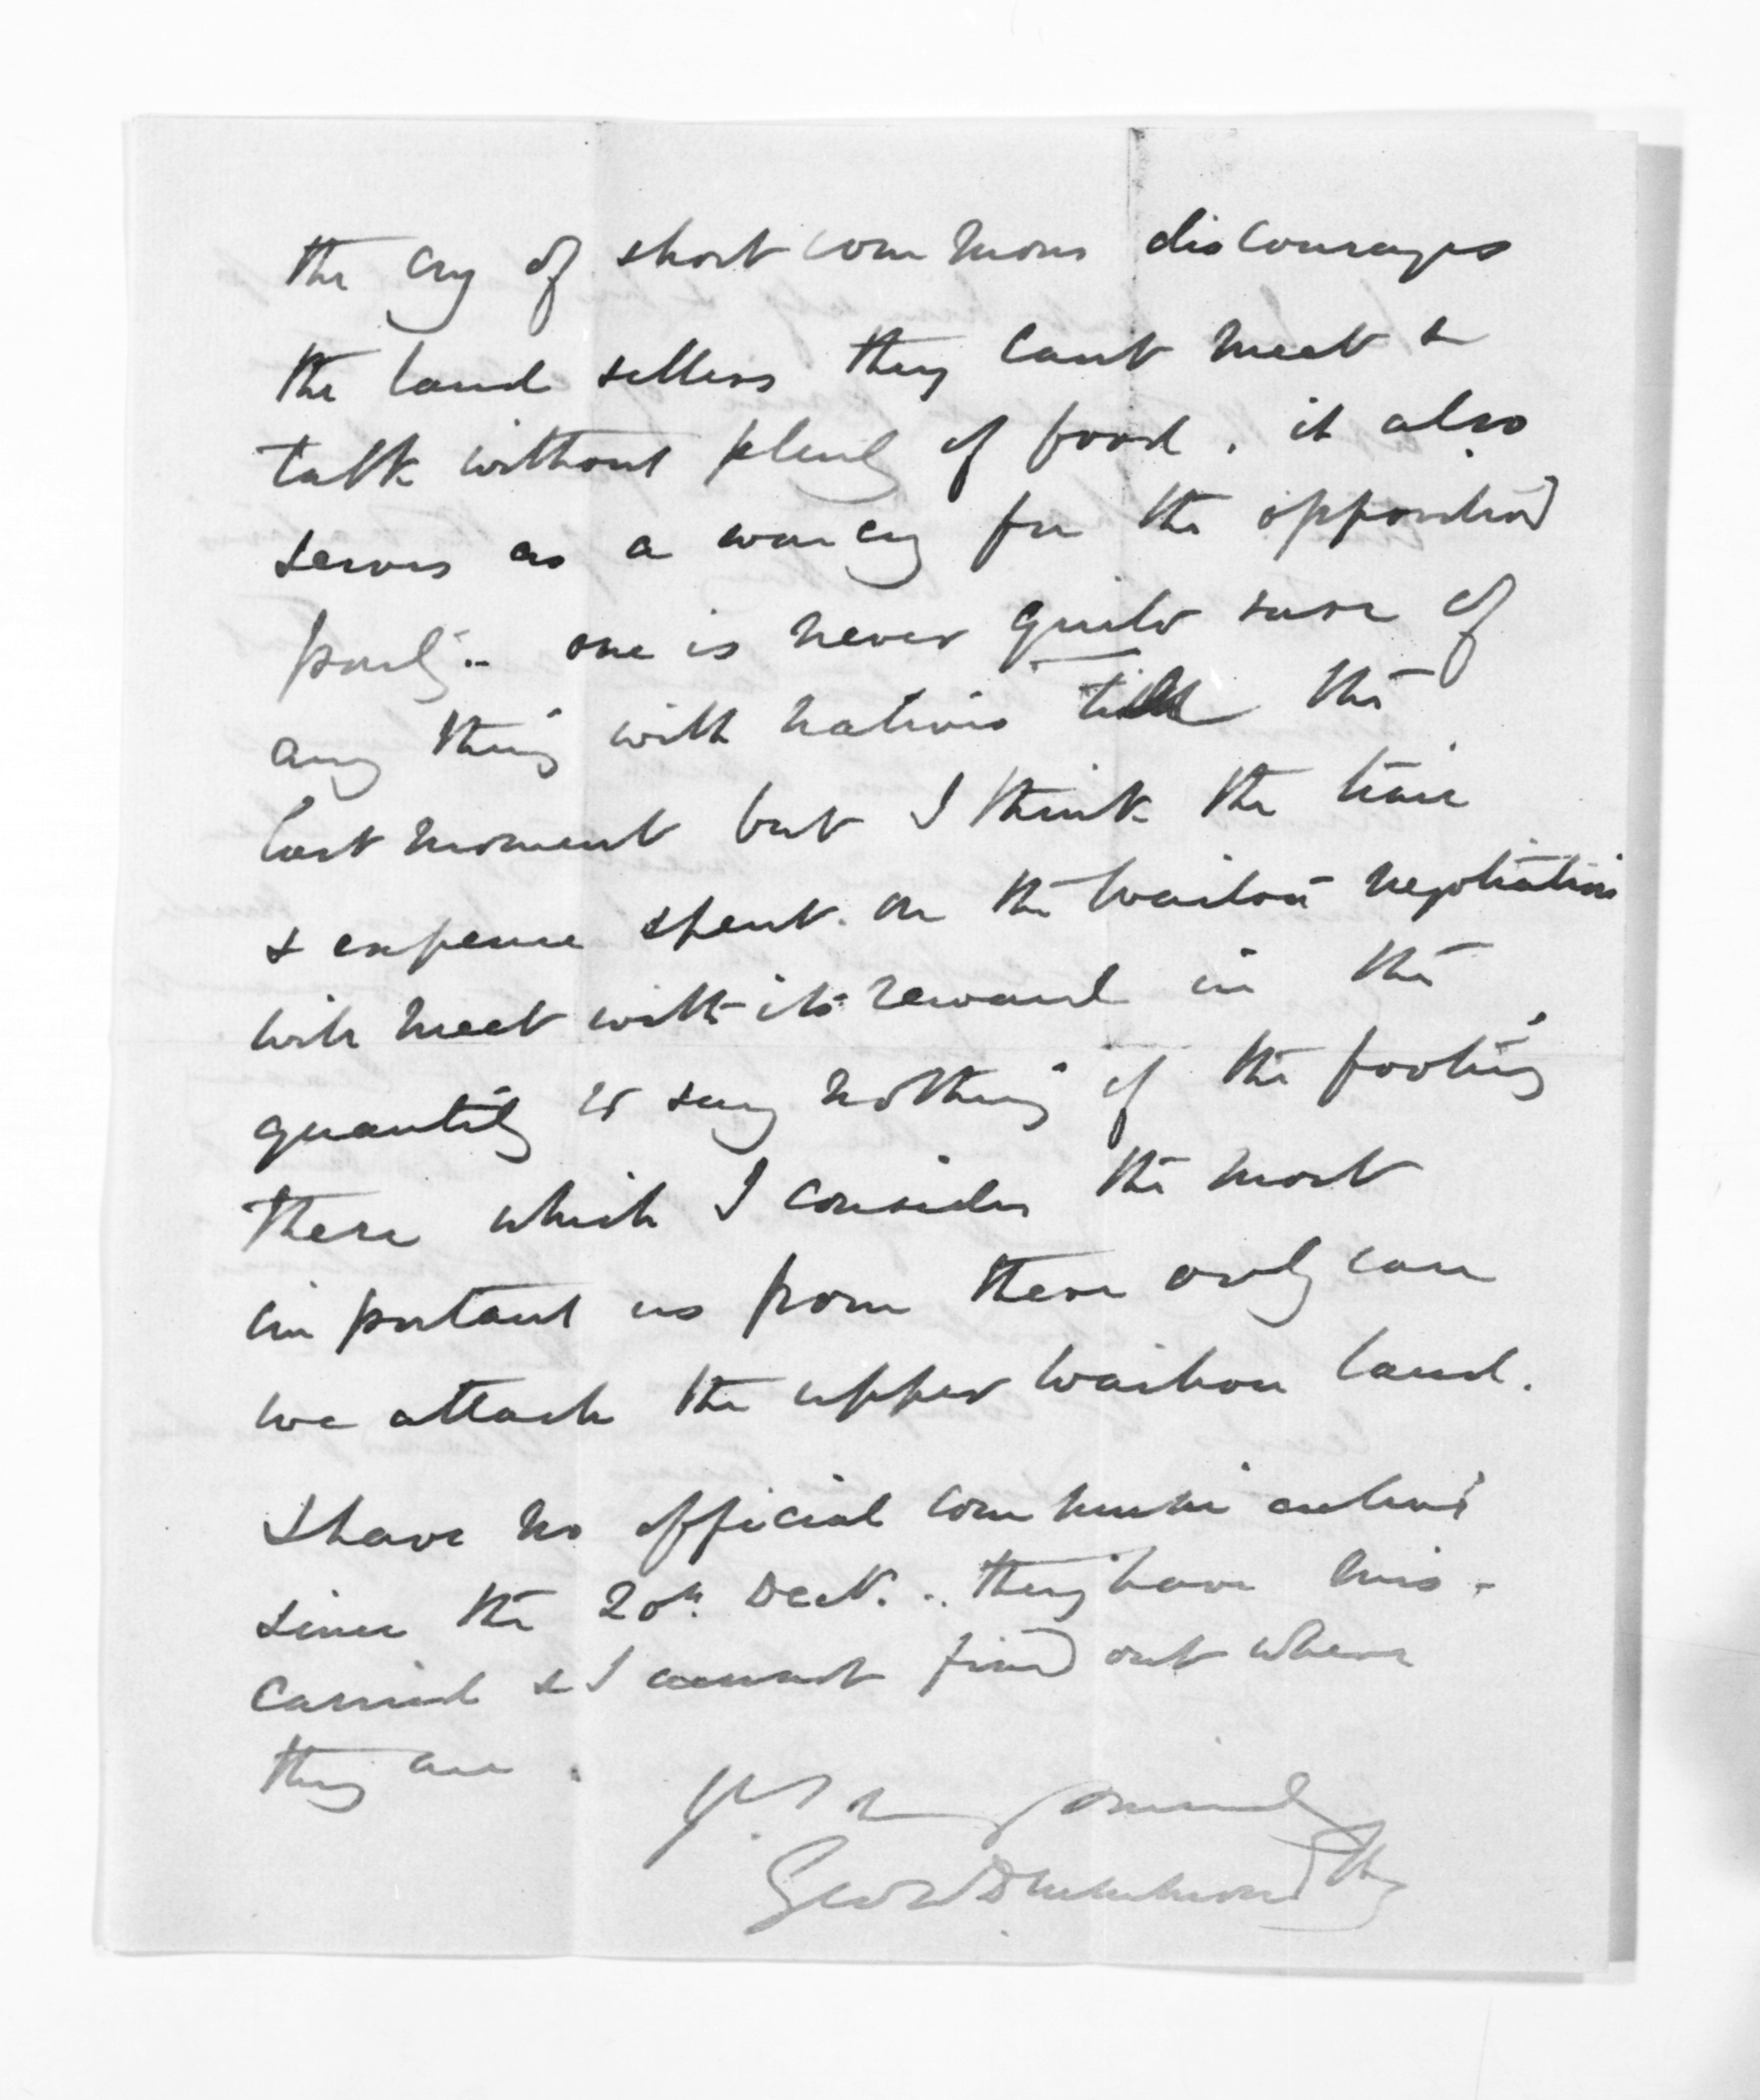 the cry of short commons discourages
the land sellers they cant meet &
talk without plenty of food. it also
serves as a war cry for the opposition
party.. one is never quite sure of
any thing with natives till the
last moment but I think the time
& expense spent. on the Wailou negotiations
will meet with its reward in the
quantity to say nothing of the footing
there which I consider the most
important as from there only can
we attack the upper Waihou land.
I have no official communications
since the 20th. Dect... they have mis-
carried & I cannot find out where
they are.